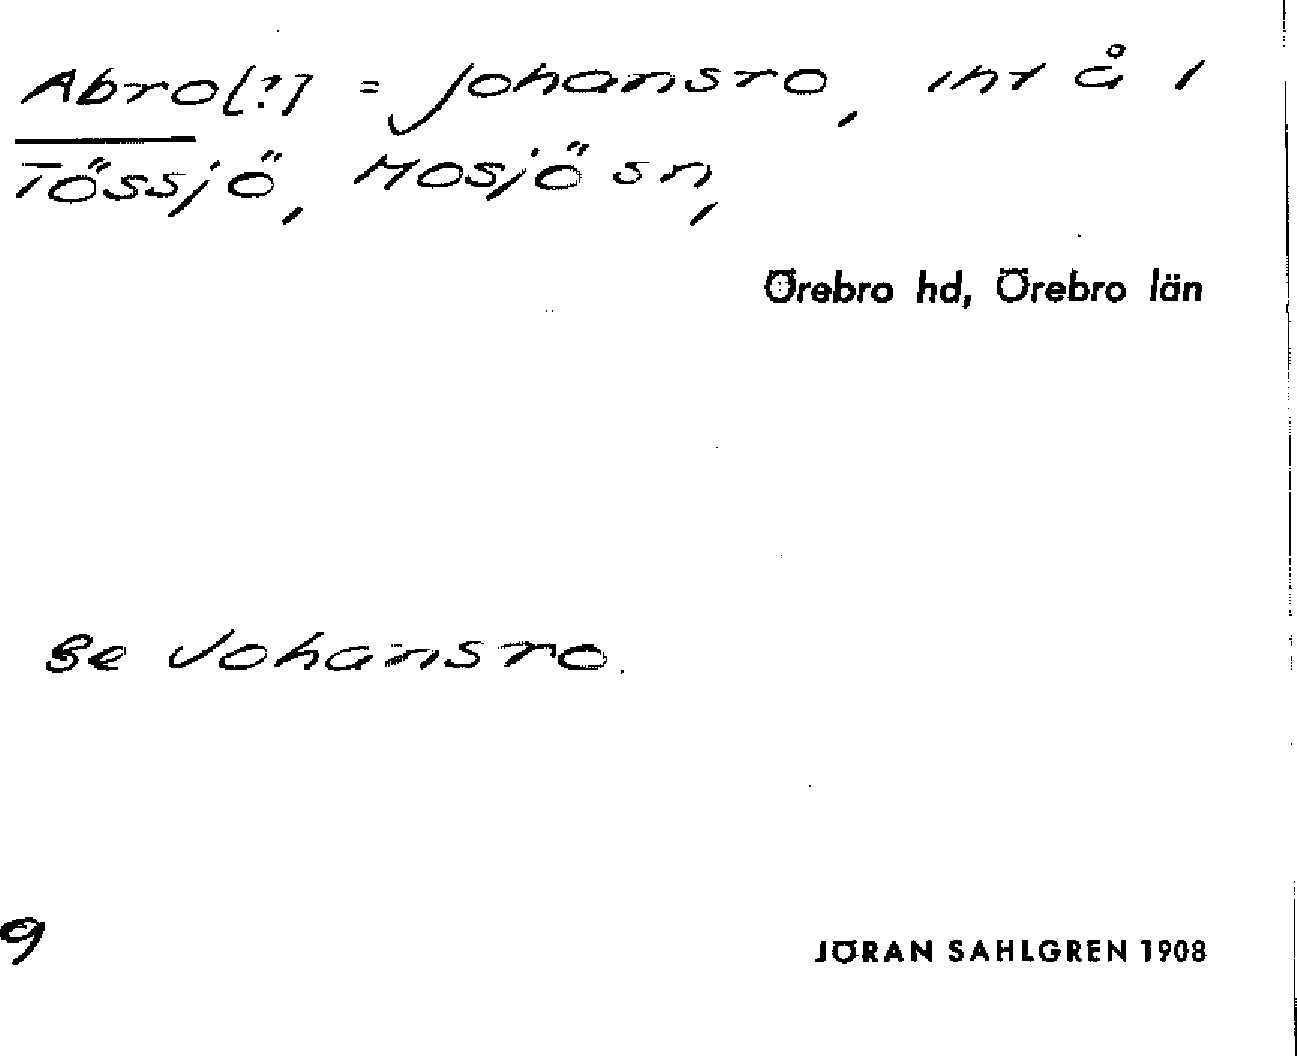 Abro[?] = Johansro, int å 1
Tössjö, Mosjö sn,
Örebro hd, Örebro län
se Johansro.
9
JÖRAN SAHLGREN 1908